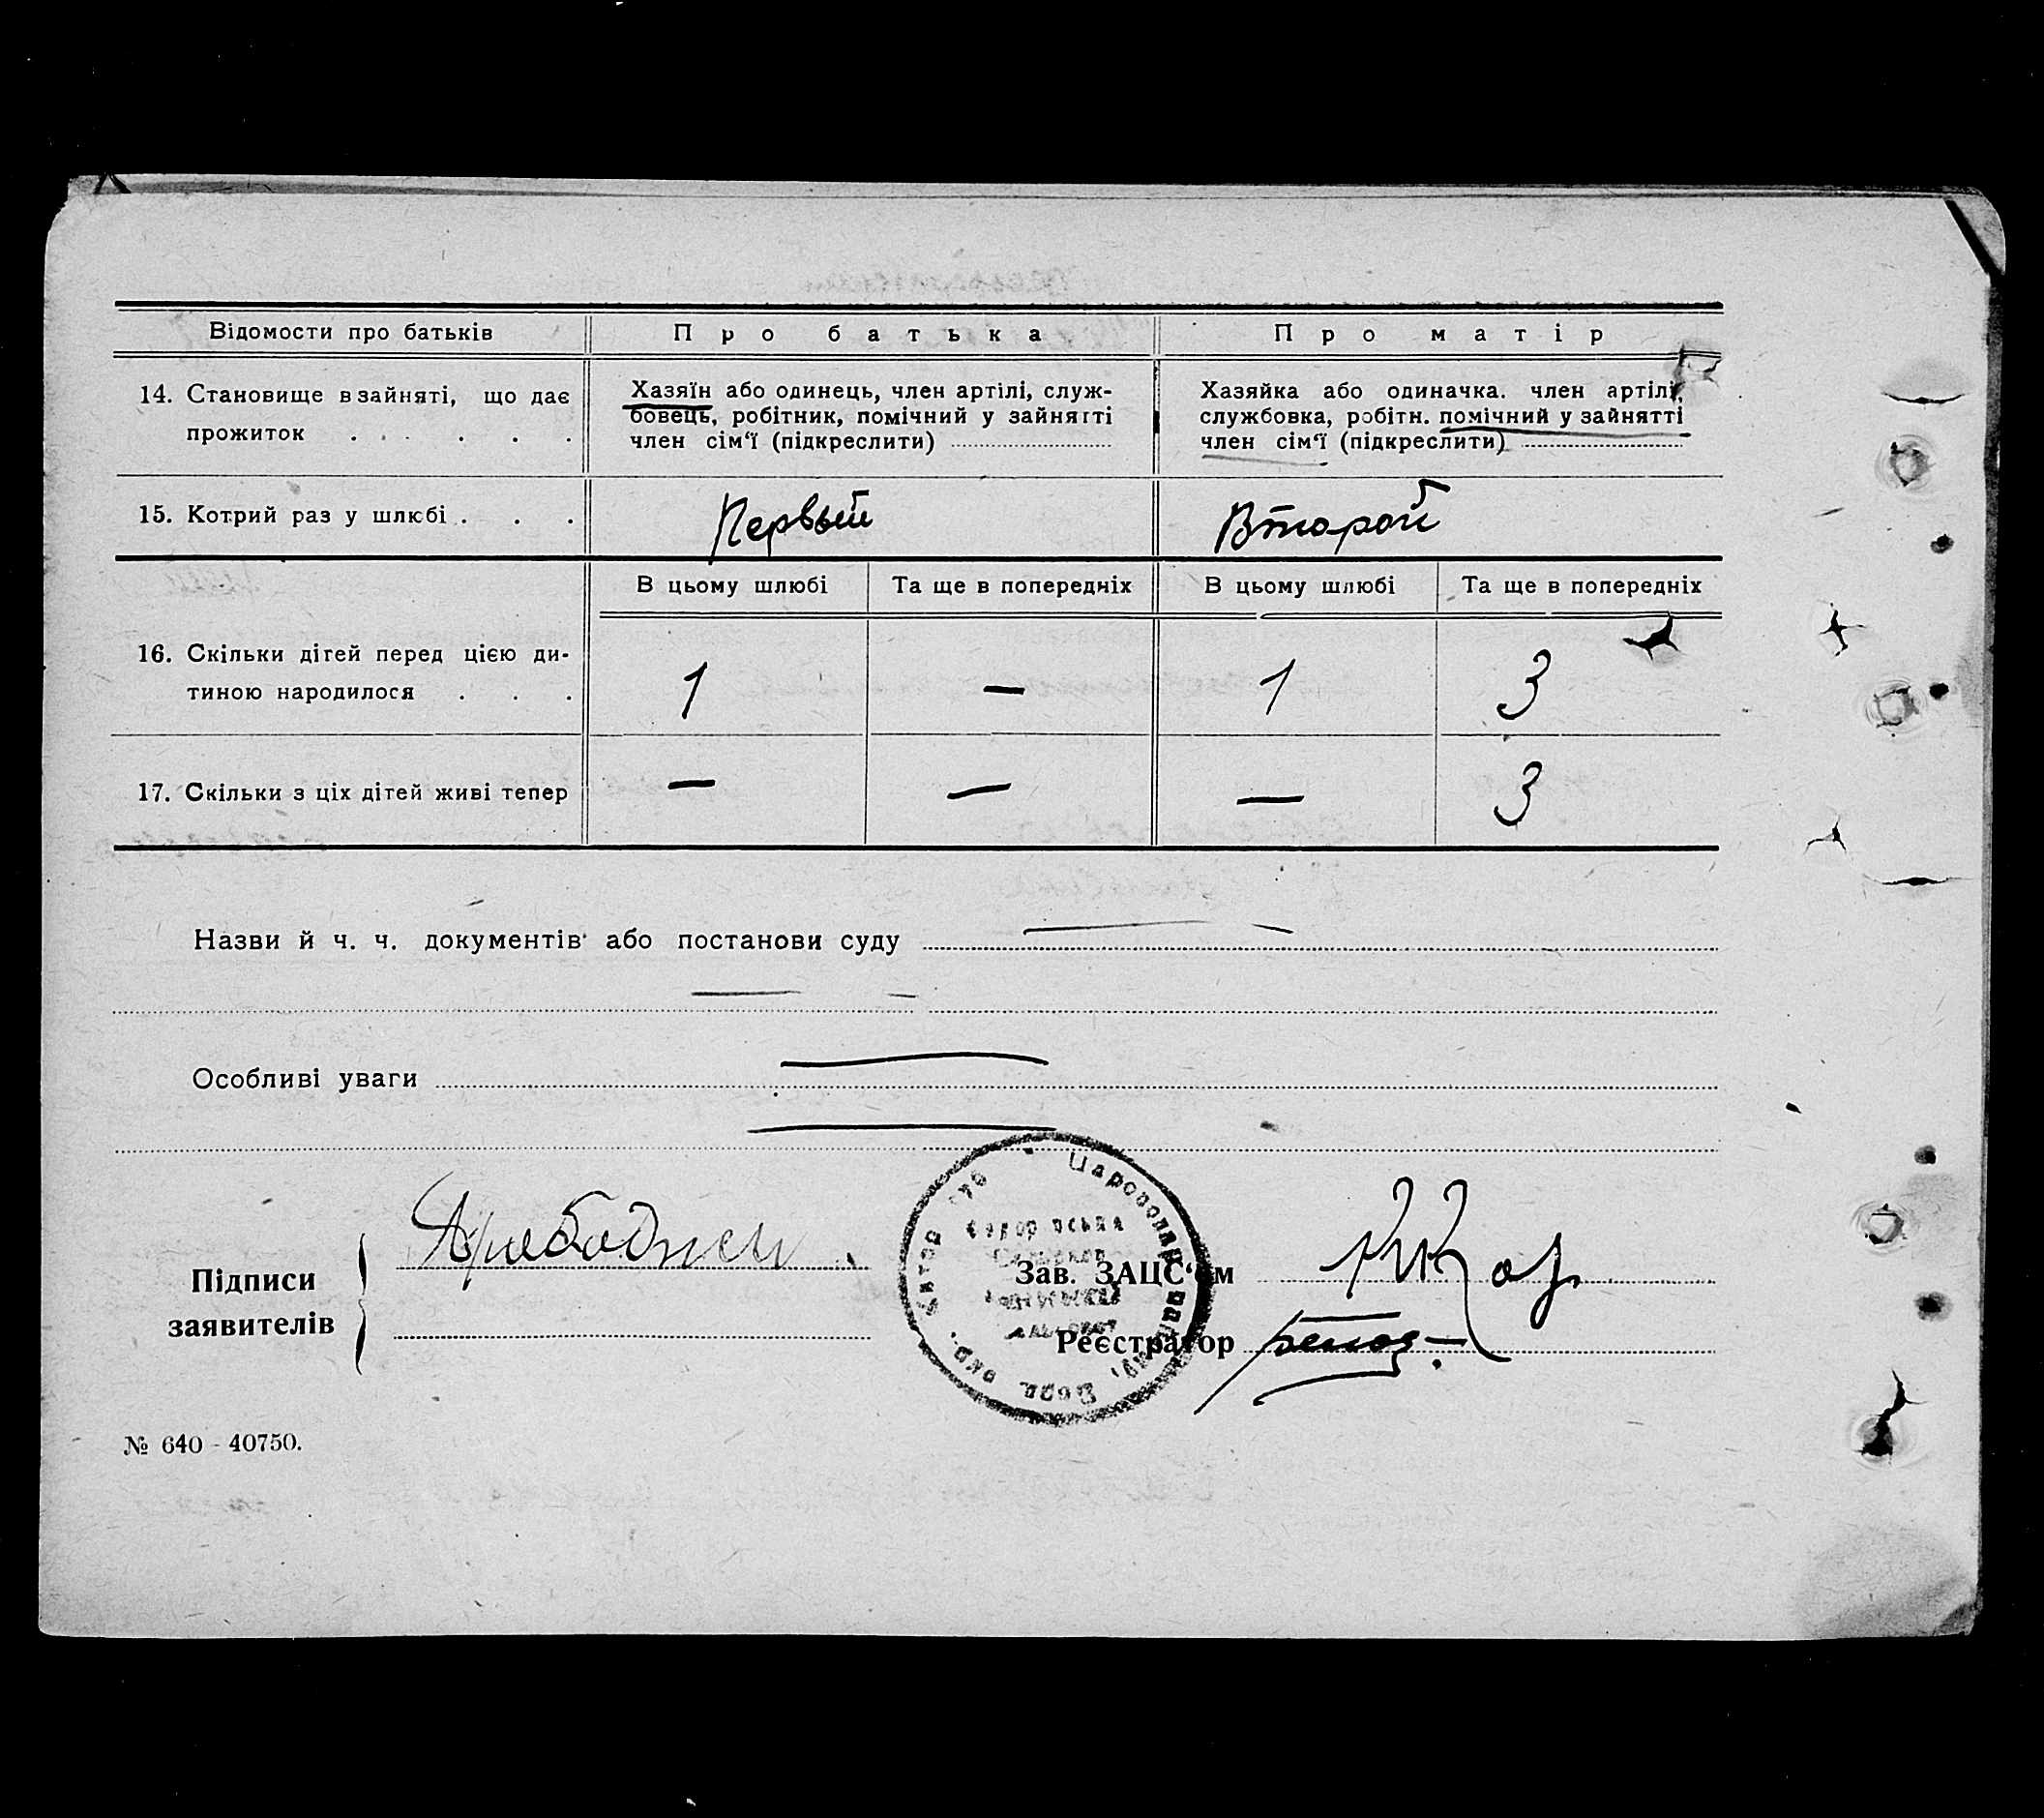 Відомости про батьків
Про батька
Про матір
14. Становище в зайняті, що дає
прожиток . . . . . .
Хазяїн або одинець, член артілі, служ-
бовець, робітник, помічний у зайнятті
член сім‘ї (підкреслити)
Хазяйка або одиначка. член артілі,
службовка, робітн. помічний у зайнятті
член сім‘ї (підкреслити)
15. Котрий раз у шлюбі . . .
Первый
Второй
В цьому шлюбі
Та ще в попередніх
В цьому шлюбі
Та ще в попередніх
16. Скільки дітей перед цією ди-
тиною народилося . . .
1
—
1
3
17. Скільки з ціх дітей живі тепер
—
—
—
3
Назви й ч. ч. документів або постанови суду
Особливі уваги
Підписи
заявителів
Зав. ЗАЦС‘ом
Реєстратор
№ 640 - 40750.